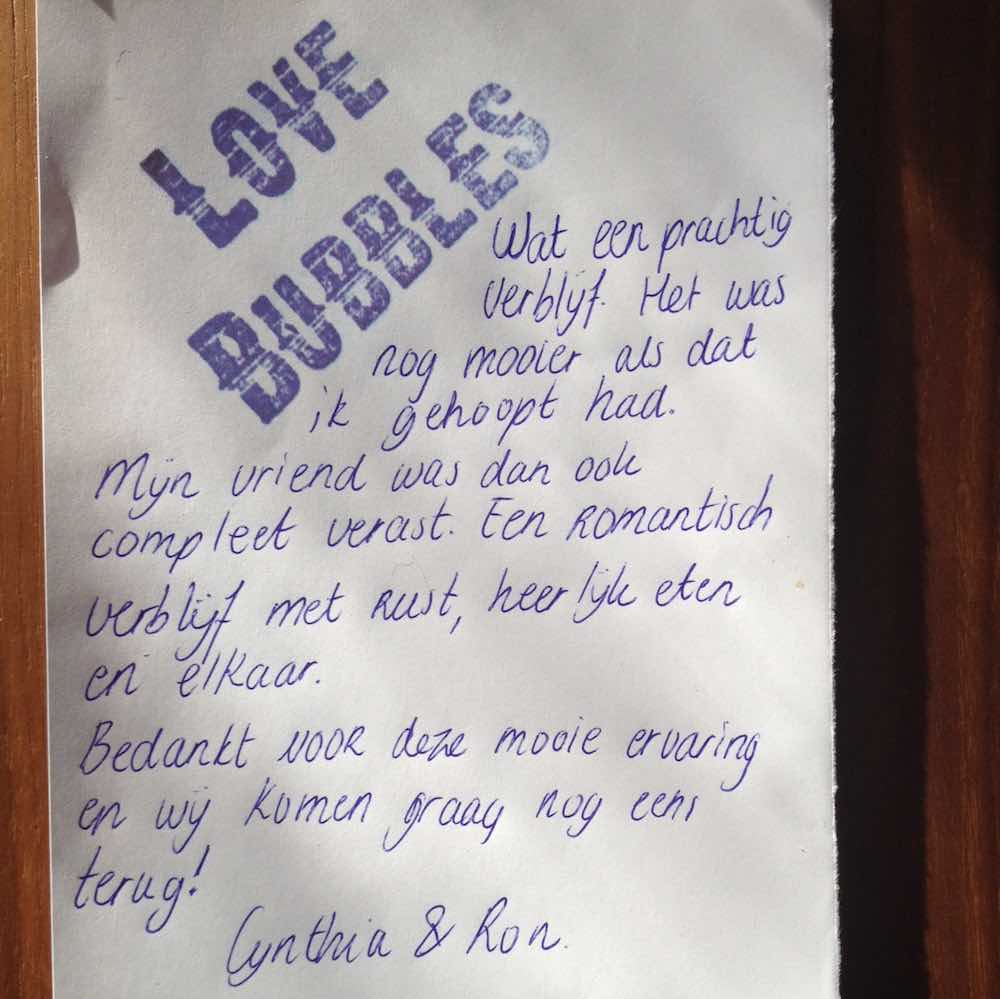 LOVE
BUBBLES
Wat een prachtig
verblijf. Het was
nog mooier als dat
ik gehoopt had.
Mijn vriend was dan ook
compleet verast. Een romantisch
verblijf met rust, heerlijk eten
en elkaar.
Bedankt voor deze mooie ervaring
en wij komen graag nog eens
terug!
Cynthia & Ron.